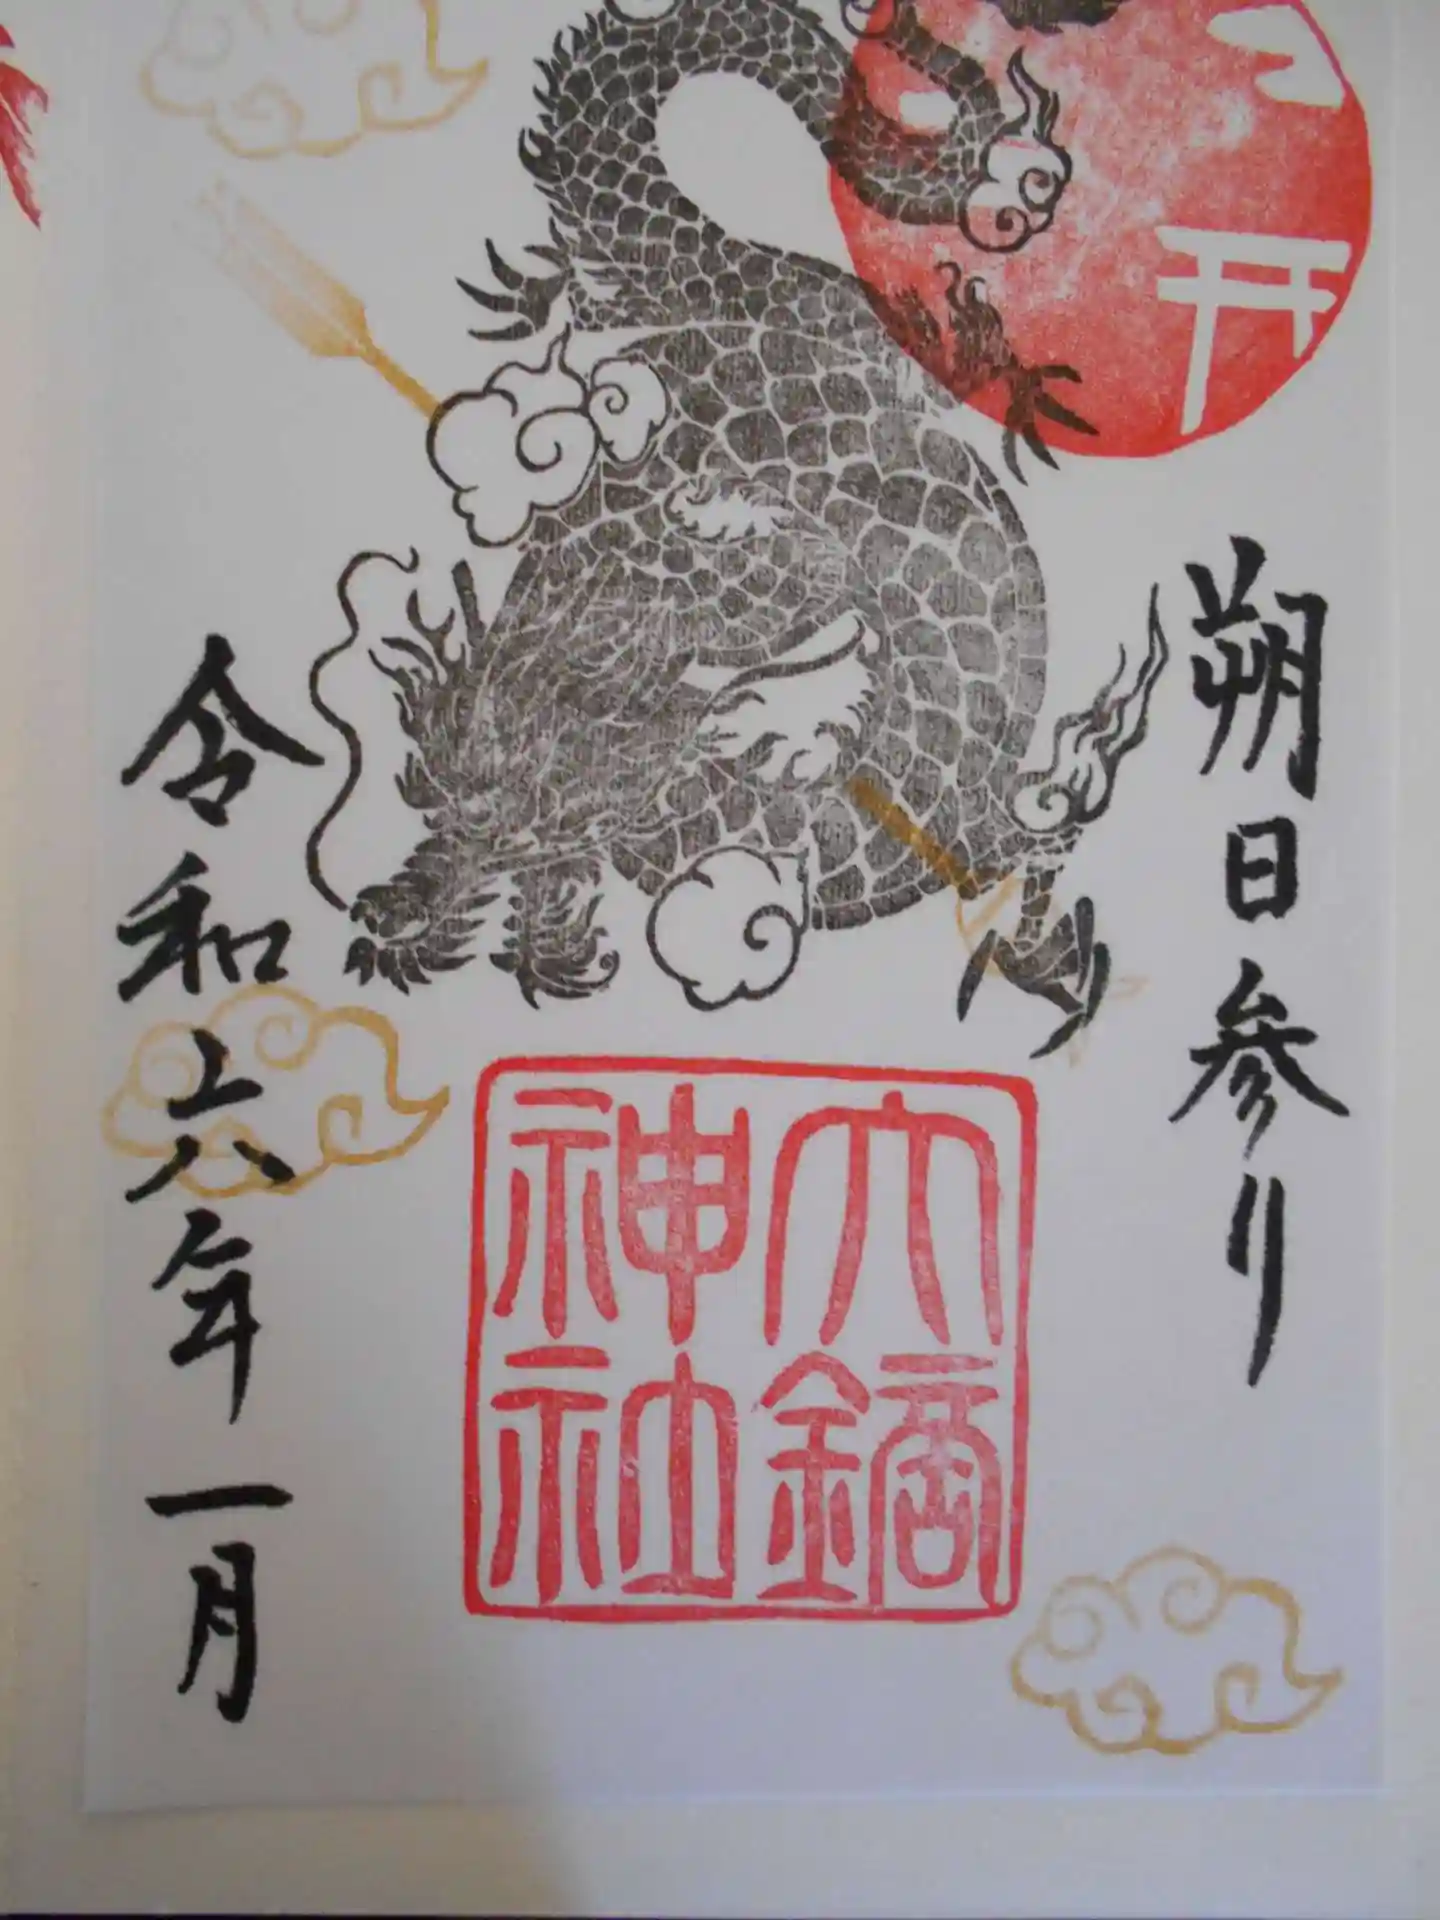 朔日参り
六鏑
神社
令和六年一月